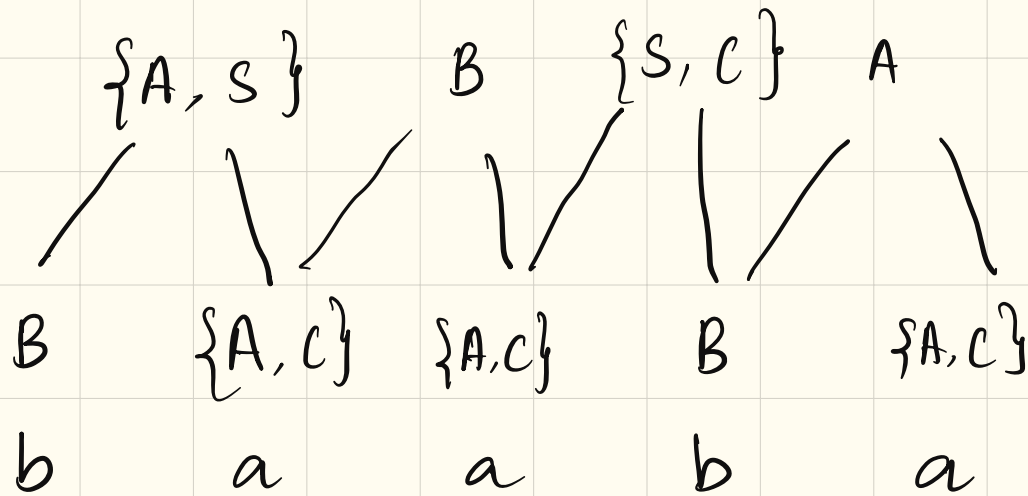 {A, S} B {S, C} A
B {A, C} {A,C} B {A,C}
b a a b a